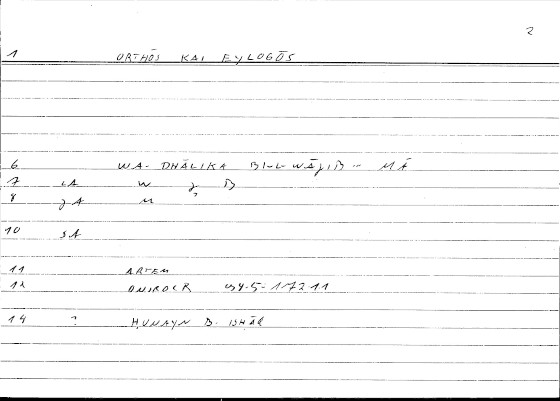 2
1 ORTHŌS KAI EYLOGŌS
6 WA- DHĀLIKA BI-L-WĀJIB - MĀ
7 LA W J B
8 JA M
10 SA
11 ARTEM
12 ONIROCR 34-5-17211
14 ? ḤUNAYN B. ISḤĀQ